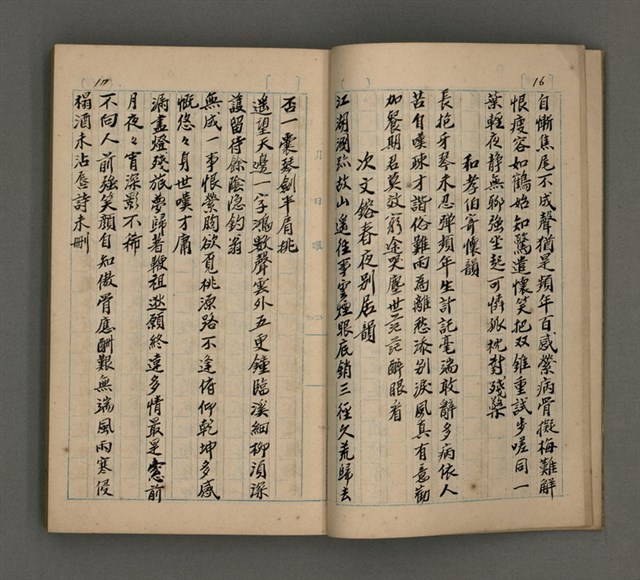 16
自慚焦尾不成聲猶是頻年百感縈病骨擬梅難解
恨瘦容如鶴始知驚遣懷笑把雙錐重試步嗟同一
葉輕夜靜無聊強坐起可憐孤枕對殘檠
和孝伯寄懷韻
長抱牙琴未忍彈頻年生計託毫端敢辭多病依人
苦自嘆球才諧俗難雨為離愁添別淚風真有意勸
加餐期君莫效窮途哭塵世茫茫醉眼看
次文鎔春夜別居韻
江湖瀾跡故山遙往事雲煙眼底銷三徑久荒歸去
17
否一囊琴劍半肩挑
遙望天邊一字鴻數聲雲外五更鐘臨溪細柳須深
護留待餘蔭隱釣翁
無成一事恨縈胸欲覓桃源路不逢俯仰乾坤多感
慨悠々身世嘆才庸
漏盡燈殘旅夢歸著鞭祖逖願終違多情最是窓前
月夜々窗深影不稀
不向人前強笑顏自知傲骨應酬艱無端風雨寒侵
榻酒未沾唇詩未刪